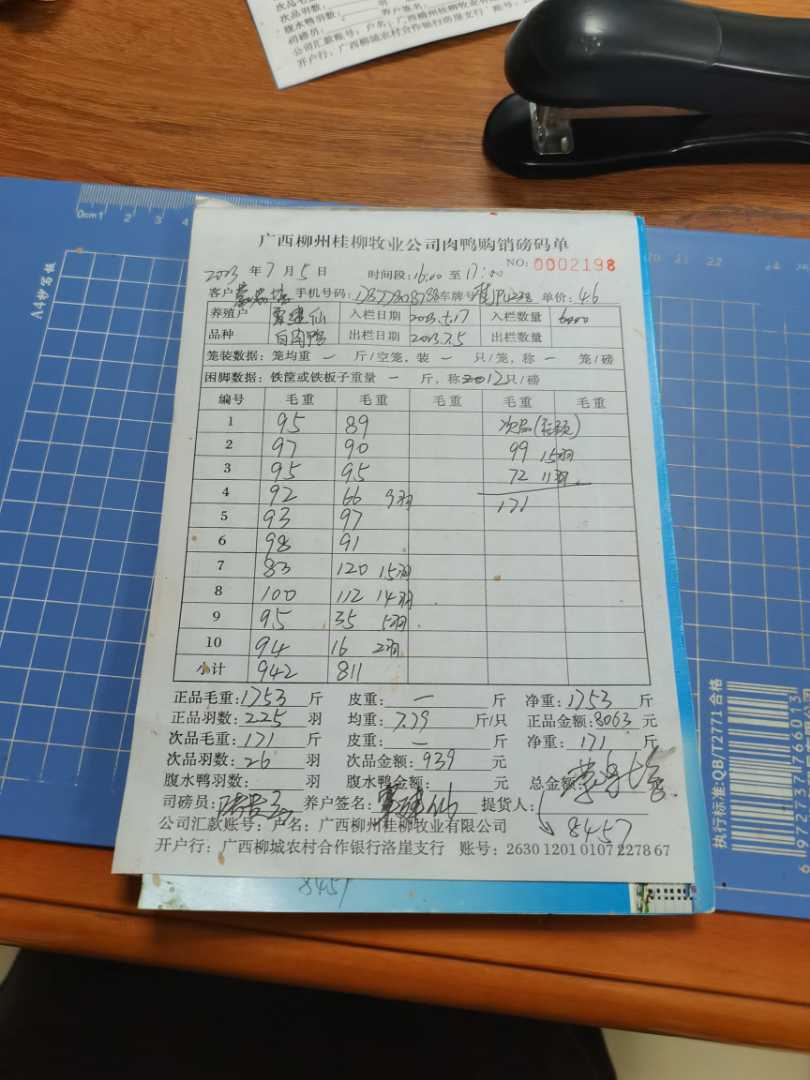 次品羽数:
腹水鸭羽数: 养户签名:
司磅员:
公司汇款账号: 户名: 广西柳州桂柳牧业有
开户行: 广西柳城农村合作银行洛崖支行 账号:
0cm1 2 3 4
A4抄写板
广西柳州桂柳牧业公司肉鸭购销磅码单
NO: 0002198
2023 年 7 月 5 日 时间段: 16:00 至 17:00
客户 手机号码: 车牌 单价: 4.6
养殖户 入栏日期 2023.5.17 入栏数量
品种 白肉鸭 出栏日期 2023.7.5 出栏数量
笼装数据: 笼均重 — 斤/空笼, 装 — 只/笼, 称 — 笼/磅
困脚数据: 铁筐或铁板子重量 — 斤, 称 12只/磅
编号 毛重 毛重 毛重 毛重 毛重
1 95 89 次品
2 97 90 99 15羽
3 95 95 72 11羽
4 92 66 9羽 171
5 93 97
6 98 91
7 83 120 15羽
8 100 112 14羽
9 95 35 5羽
10 94 16 2羽
小计 942 811
正品毛重: 1753 斤 皮重: — 斤 净重: 1753 斤
正品羽数: 225 羽 均重: 7.79 斤/只 正品金额: 8063 元
次品毛重: 171 斤 皮重: — 斤 净重: 171 斤
次品羽数: 26 羽 次品金额: 939 元 总金额:
腹水鸭羽数: 羽 腹水鸭金额: 元
司磅员: 养户签名: 提货人:
8457
公司汇款账号: 户名: 广西柳州桂柳牧业有限公司
开户行: 广西柳城农村合作银行洛崖支行 账号: 2630 1201 0107 2278 67
8457
执行标准:QB/T2771 合格
6 972737 766013